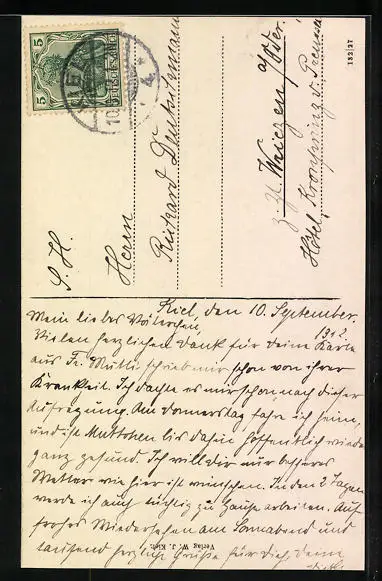 5 5
DEUTSCHES REICH
KIEL
10.
S. H.
Herrn
Richard Deutschmann
z. Zt. Wriezen a/d Oder.
Hôtel Kronprinz v. Preussen
182/27
Kiel, den 10. September.
1912.
Mein liebes Väterchen,
Vielen herzlichen Dank für deine Karte
aus Fr. Mutti schrieb mir schon von ihrer
Krankheit. Ich dachte es mir schon, nach dieser
Aufregung. Am Donnerstag fahre ich heim,
und ist Muttchen bis dahin hoffentlich wieder
ganz gesund. Ich will dir nur besseres
Wetter wie hier ist wünschen. In den 2 Tagen
werde ich auch tüchtig zu Hause arbeiten. Auf
frohes Wiedersehen am Sonnabend und
tausend herzliche Grüße für Dich, dein
Verlag W. J. Kiel.